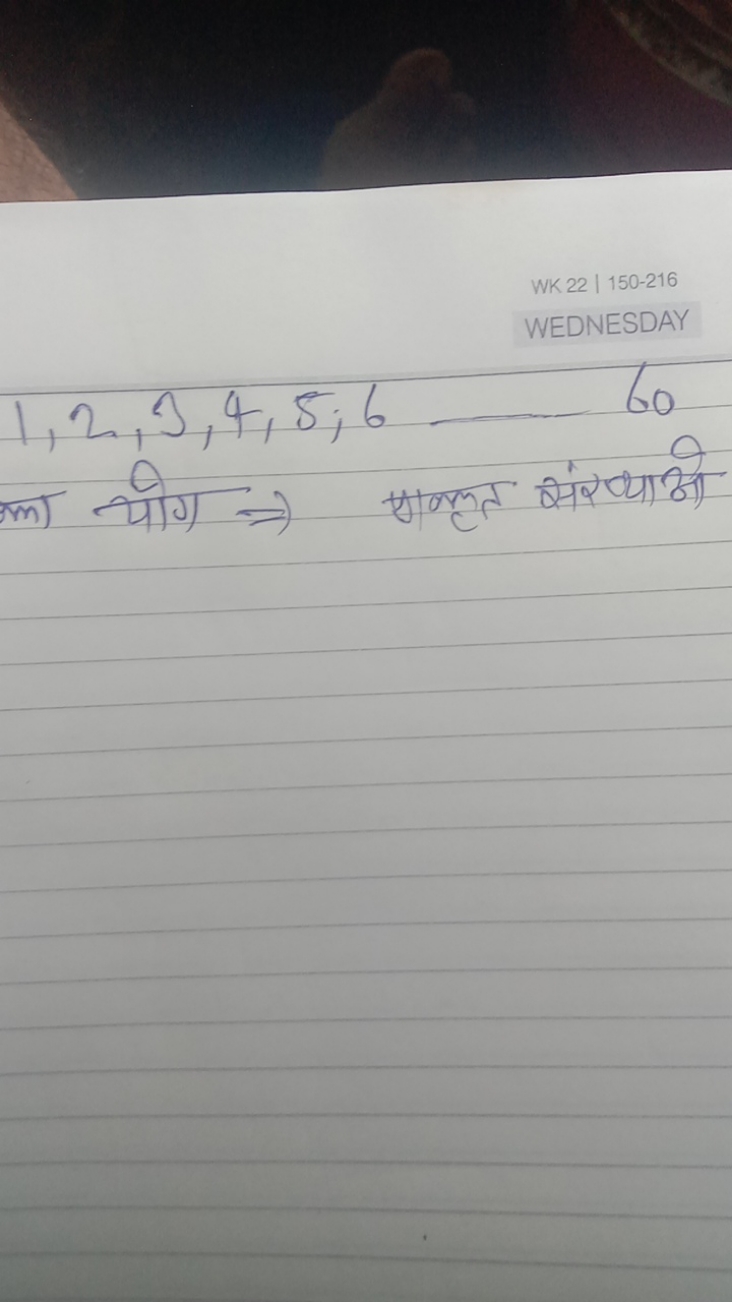 WK 22 | 150-216
WEDNESDAY
1, 2, 3, 4, 5, 6 —— 60
का योग ⇒ प्राकृत संख्याओ